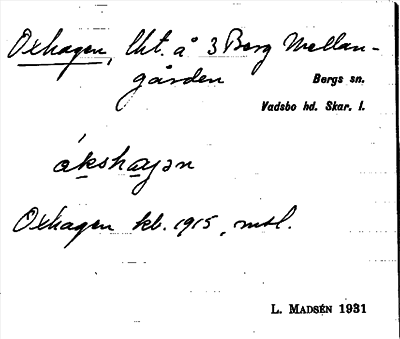 Oxhagen, lht. å 3 Berg Mellan-
gården
Bergs sn.
Vadsbo hd. Skar. l.
ákshaɡən
Oxhagen kb. 1915, mtl.
L. MADSÉN 1931